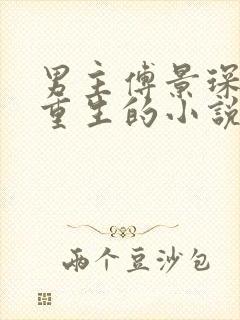 男主傅景琛
重生的小說
兩个豆沙包